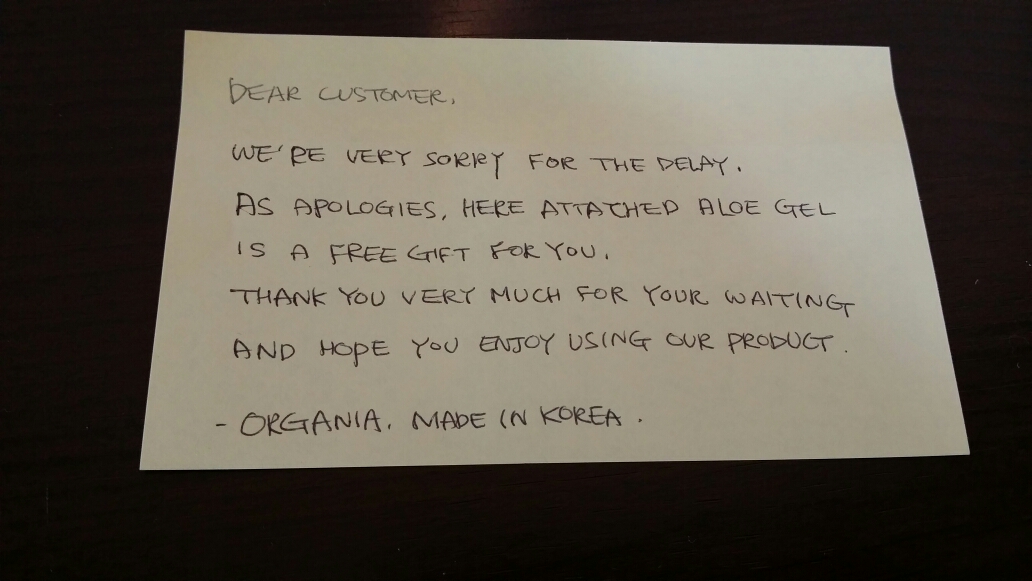 DEAR CUSTOMER,
WE'RE VERY SORRY FOR THE DELAY.
AS APOLOGIES, HERE ATTACHED ALOE GEL
IS A FREE GIFT FOR YOU.
THANK YOU VERY MUCH FOR YOUR WAITING
AND HOPE YOU ENJOY USING OUR PRODUCT.
- ORGANIA. MADE IN KOREA.